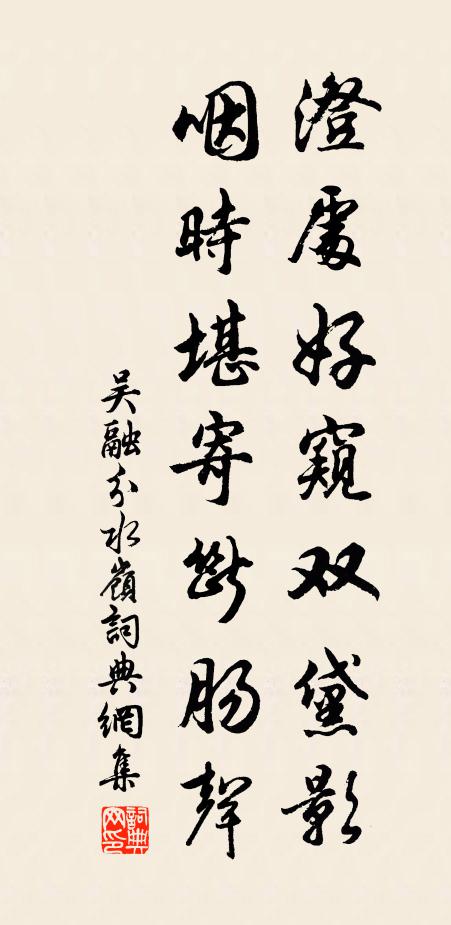 澄處好窺双黛影
咽時堪寄斷腸聲
吴融分水嶺詞典網集
詞典網印